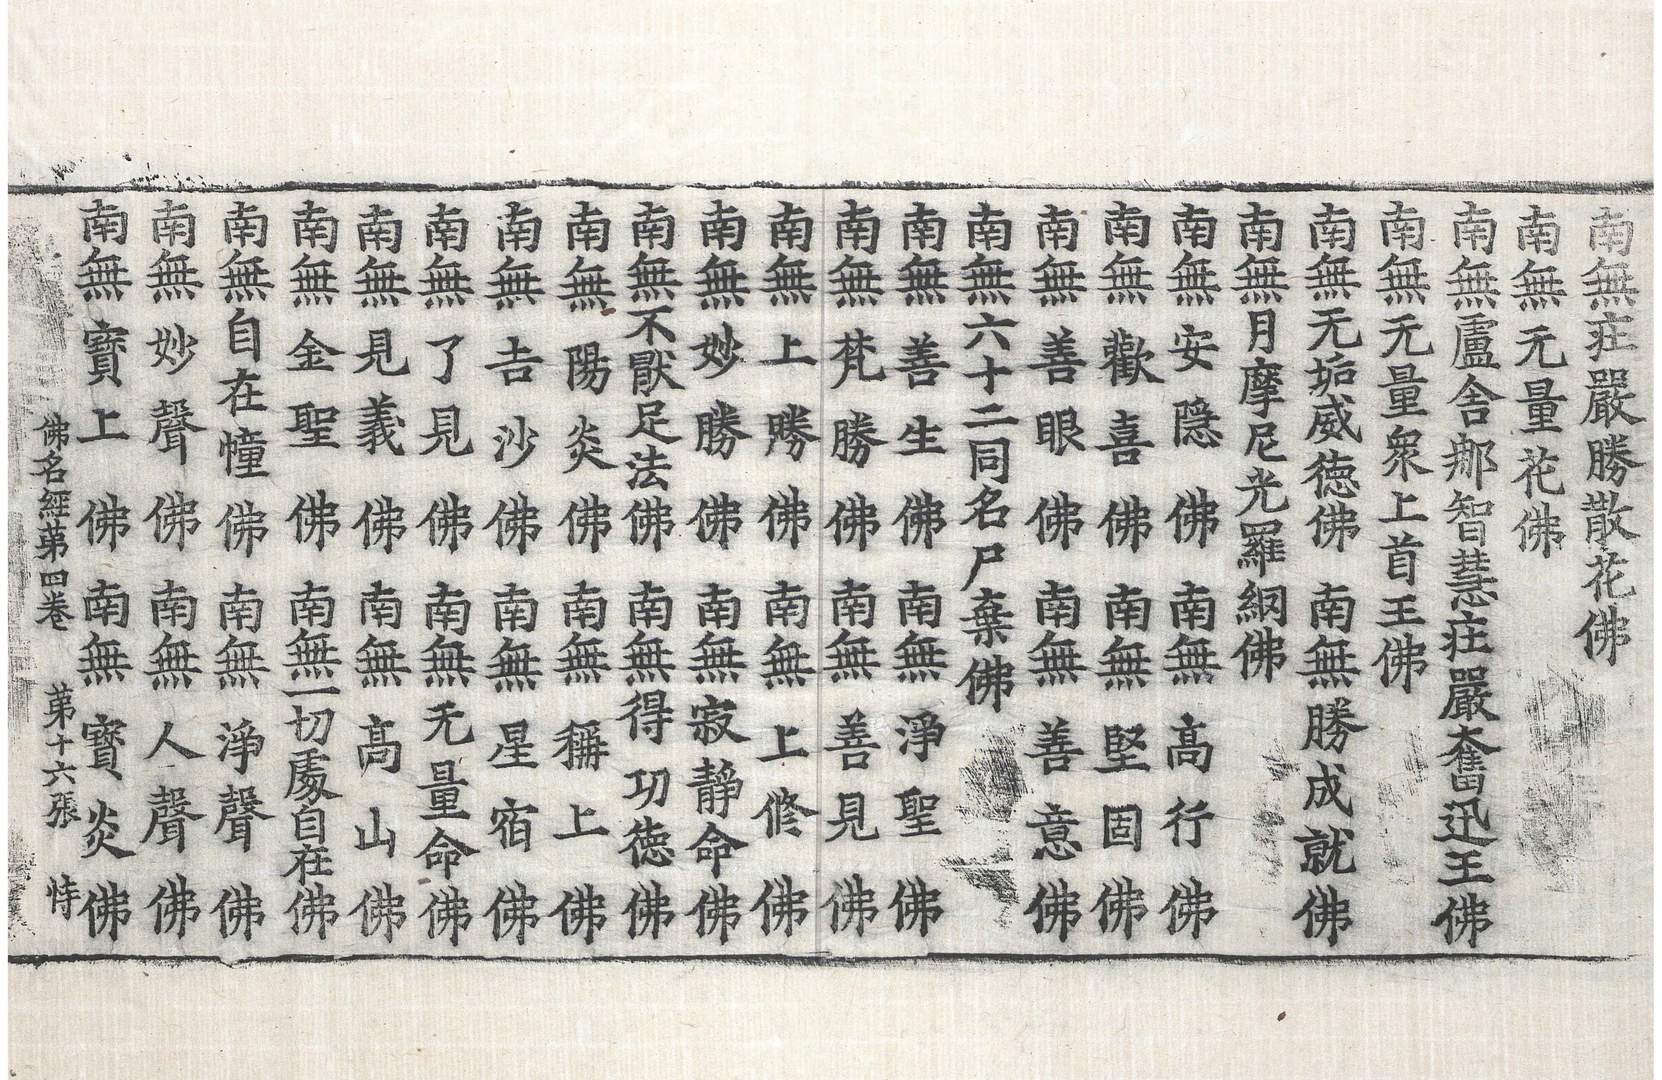 南無莊嚴勝散花佛
南無无量花佛
南無盧舍那智慧莊嚴奮迅王佛
南無无量衆上首王佛
南無无垢威德佛南無勝成就佛
南無月摩尼光羅網佛
南無安隱佛南無髙行佛
南無歡喜佛南無堅固佛
南無善眼佛南無善意佛
南無六十二同名尸棄佛
南無善生佛南無淨聖佛
南無梵勝佛南無善見佛
南無上勝佛南無上修佛
南無妙勝佛南無寂静命佛
南無不猒足法佛南無得功德佛
南無陽炎佛南無稱上佛
南無吉沙佛南無星宿佛
南無了見佛南無无量命佛
南無見義佛南無髙山佛
南無金聖佛南無一切處自在佛
南無自在幢佛南無淨聲佛
南無妙聲佛南無人聲佛
南無寶上佛南無寶炎佛
佛名經第四卷 第十六張 恃